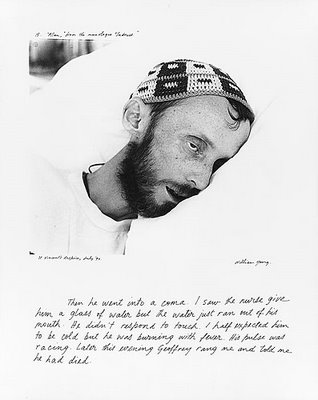 19. "Allan," from the monologue "Sadness"
St Vincent's Hospice, July '90.
William Yang.
Then he went into a coma. I saw the nurse give
him a glass of water but the water just ran out of his
mouth. He didn't respond to touch. I half expected him
to be cold but he was burning with fever. His pulse was
racing. Later this evening Geoffrey rang me and told me
he had died.